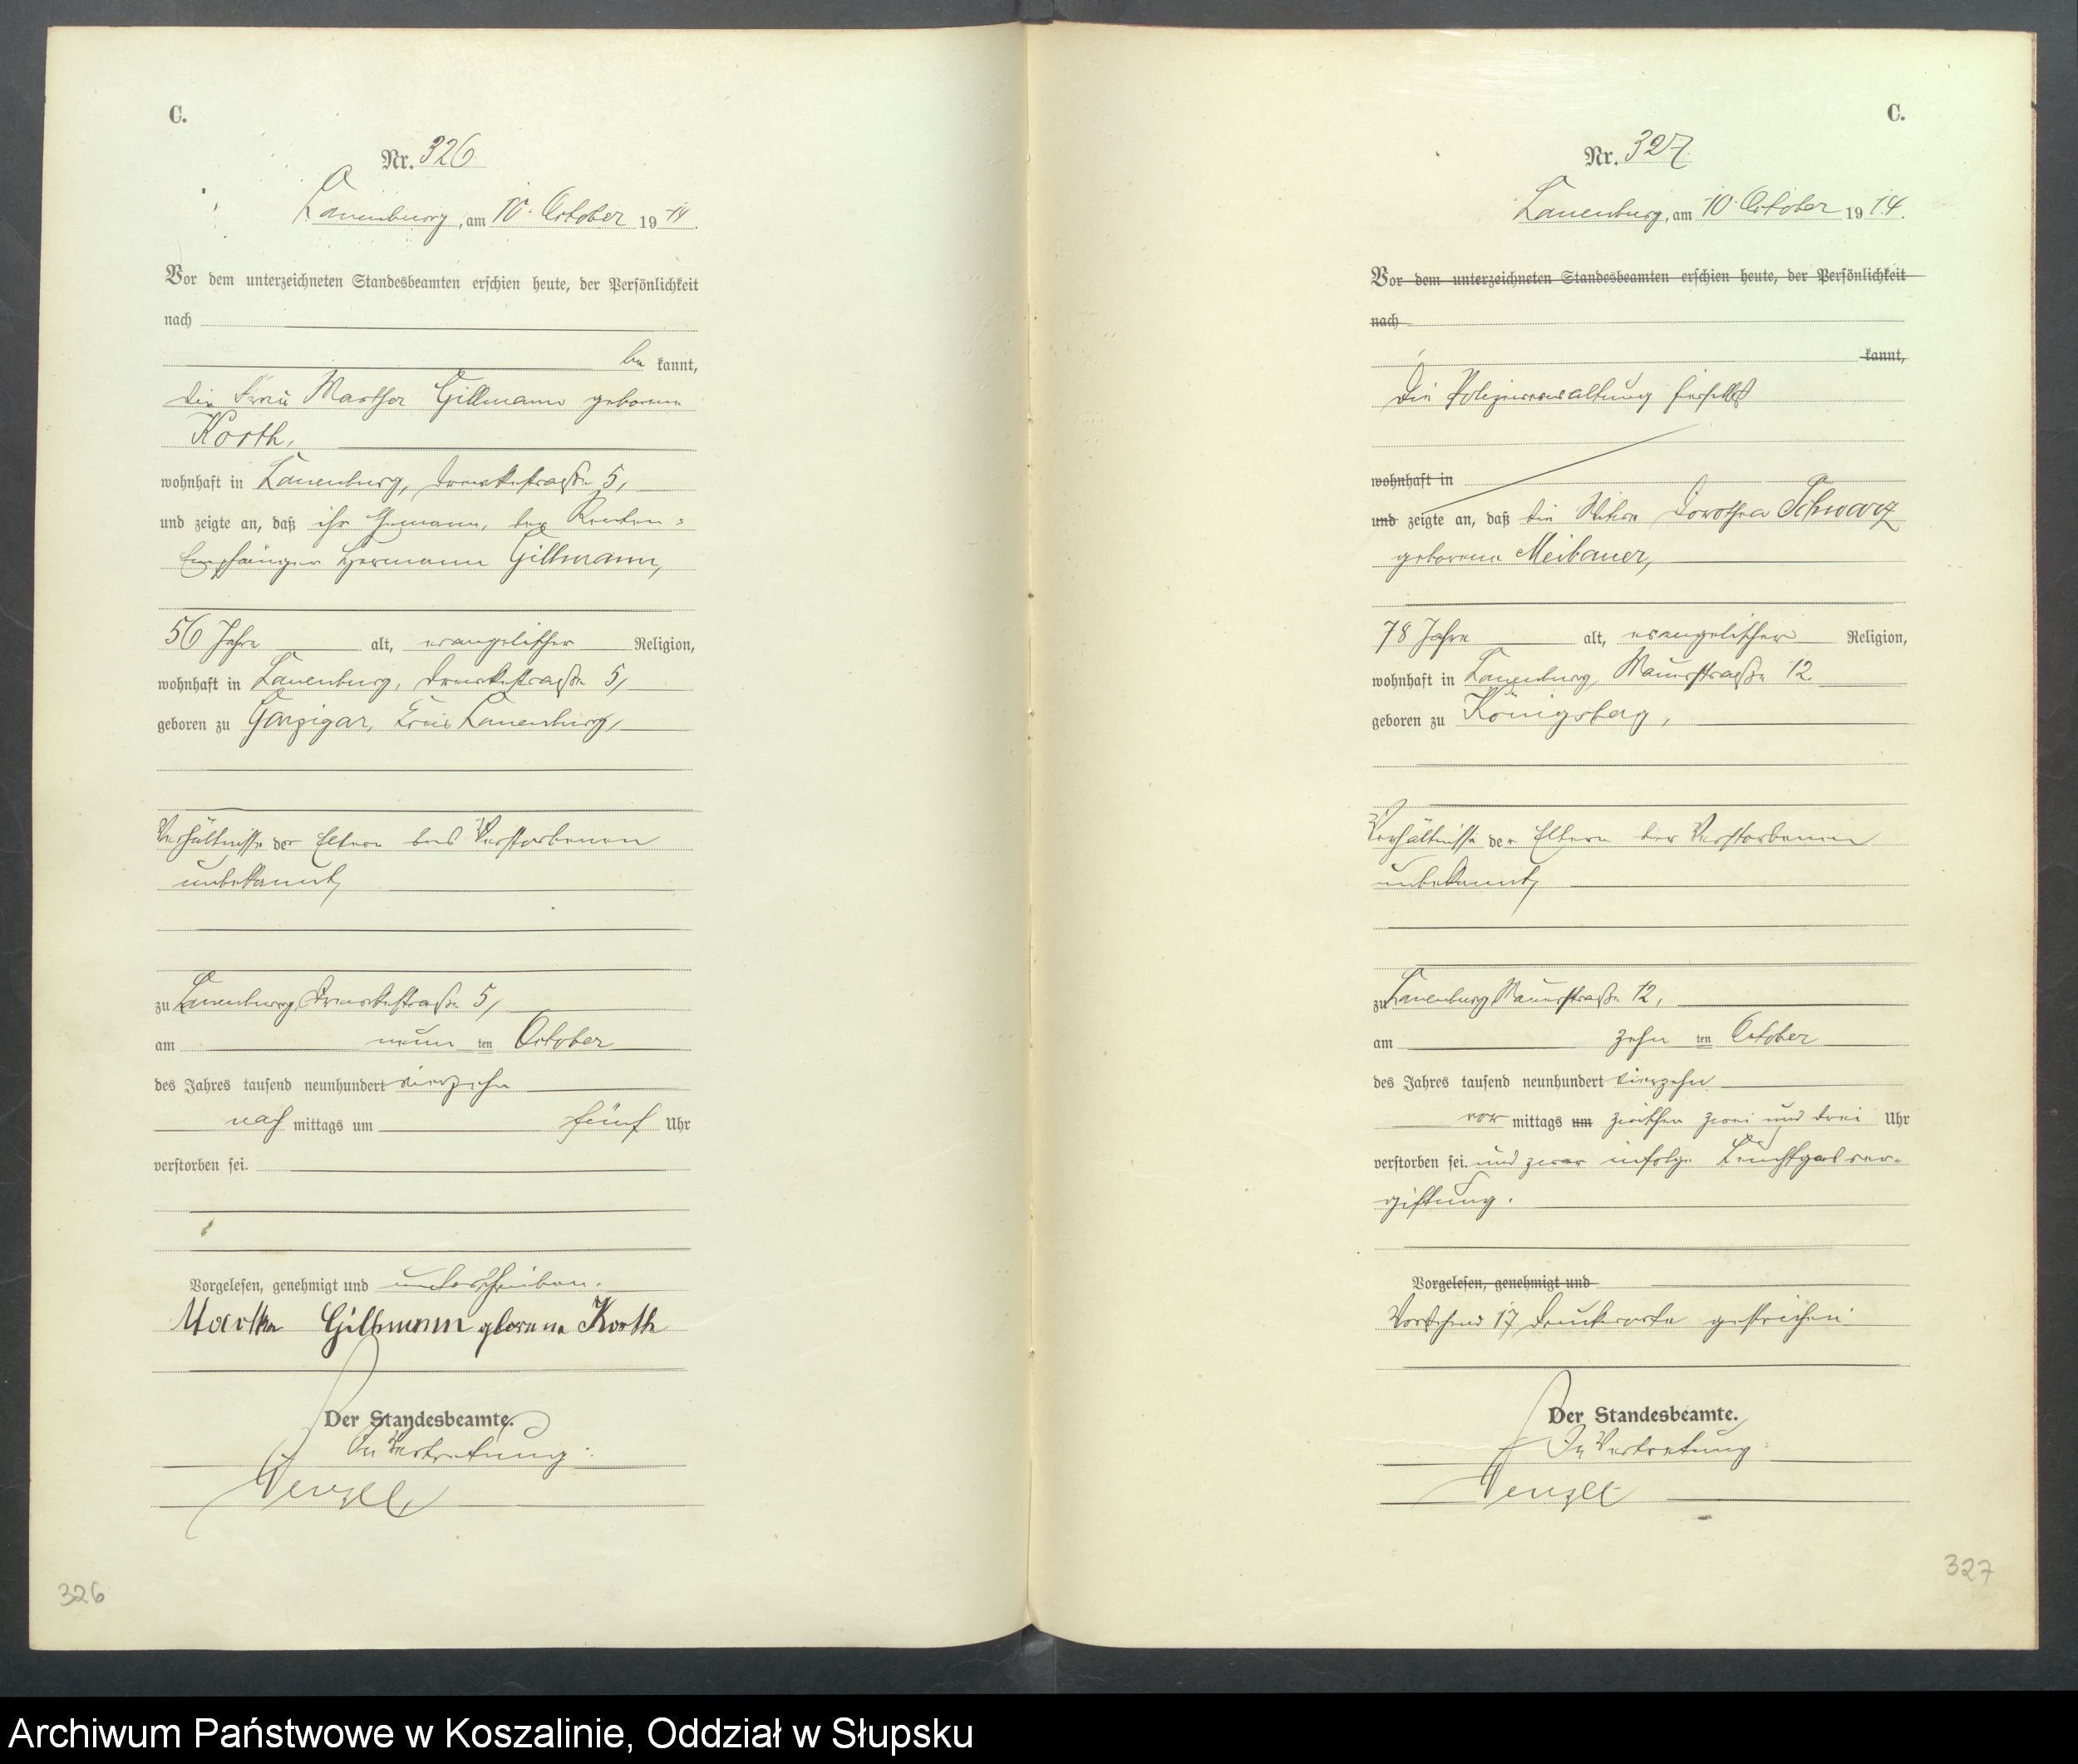 C.
Nr. 326
Lauenburg, am 10. October 1914.
Vor dem unterzeichneten Standesbeamten erschien heute, der Persönlichkeit
nach
be kannt,
die Frau Martha Gillmann geborene
Korth,
wohnhaft in Lauenburg, 5,
und zeigte an, daß ihr Ehemann, der Renten-
Empfänger Hermann Gillmann,
56 Jahre alt, evangelischer Religion,
wohnhaft in Lauenburg, 5,
geboren zu Garzigar, Kreis Lauenburg,
Verhältnisse der Eltern des Verstorbenen
unbekannt,
zu Lauenburg, 5,
am neun ten October
des Jahres tausend neunhundert vierzehn
nach mittags um fünf Uhr
verstorben sei.
Vorgelesen, genehmigt und unterschrieben.
Martha Gillmann geborene Korth
Der Standesbeamte.
In Vertretung:
Wenzel
326
C.
Nr. 327.
Lauenburg, am 10. October 1914.
Vor dem unterzeichneten Standesbeamten erschien heute, der Persönlichkeit
nach
kannt,
Die Polizeiverwaltung hierselbst
wohnhaft in
und zeigte an, daß die Witwe Dorothea Schwarz
geborene Meibauer,
78 Jahre alt, evangelischer Religion,
wohnhaft in Lauenburg, Mauerstraße 12.
geboren zu Königsberg,
Verhältnisse der Eltern der Verstorbenen
unbekannt,
zu Lauenburg, Mauerstraße 12,
am zehn ten October
des Jahres tausend neunhundert vierzehn
vor mittags um zwischen zwei und drei Uhr
verstorben sei. und zwar infolge Leuchtgasver-
giftung.
Vorgelesen, genehmigt und
Vorstehend 17 Druckworte gestrichen.
Der Standesbeamte.
In Vertretung:
Wenzel
327
Archiwum Państwowe w Koszalinie, Oddział w Słupsku